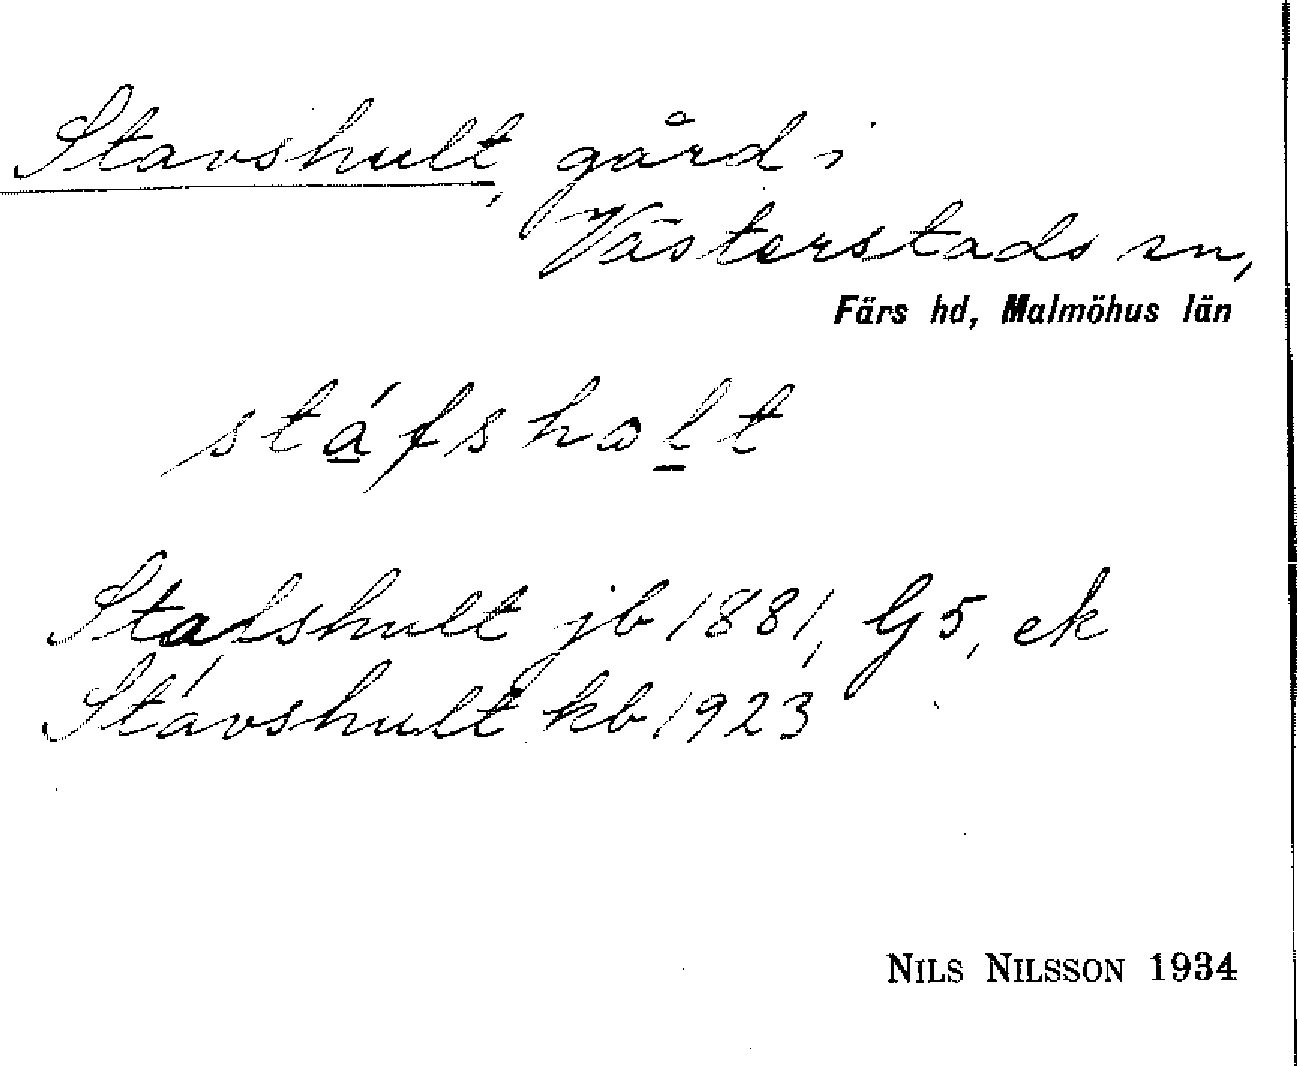 Stavshult, gård i
Västerstads sn,
Färs hd, Malmöhus län
stáfshalt
Stafshult jb 1881, G5, ek
Stávshult kb 1923
NILS NILSSON 1934